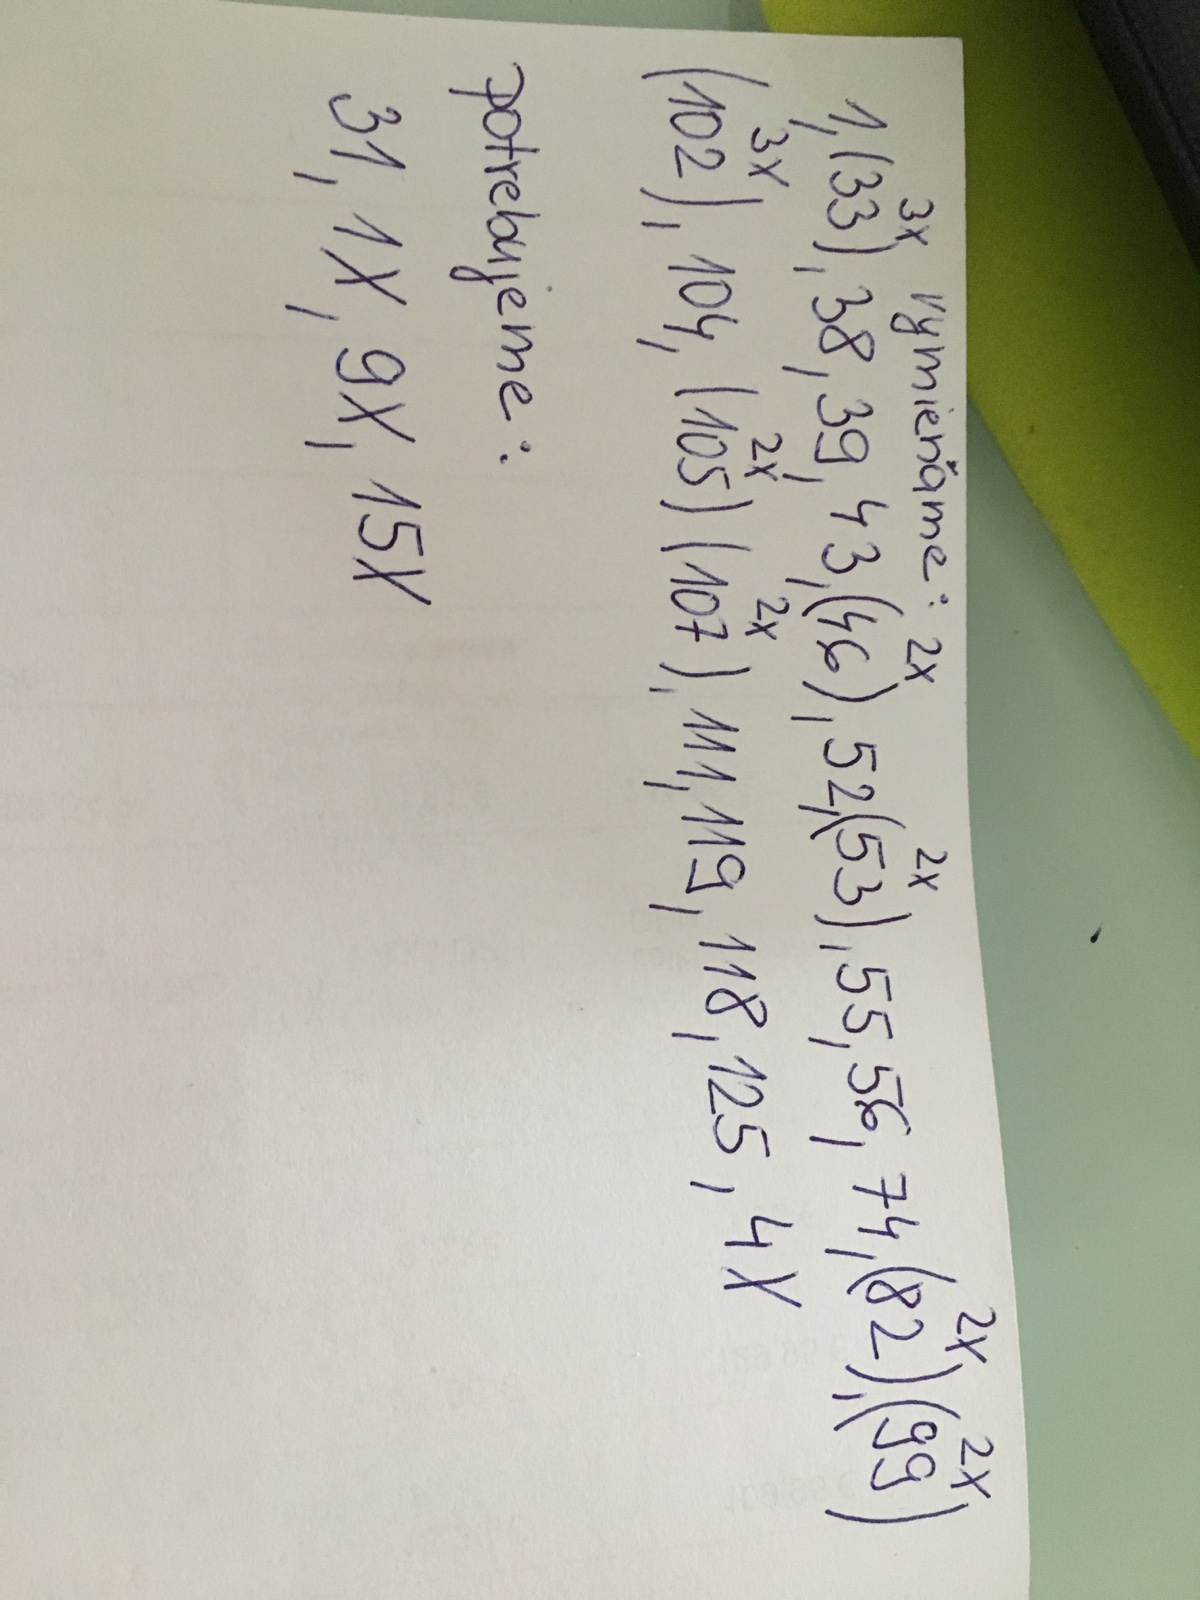 vymieňame:
3x 2x 2x 2x 2x
1, (33), 38, 39, 43, (46), 52, (53), 55, 56, 74, (82), (99)
3x 2x 2x
(102), 104, (105) (107), 111, 119, 118, 125, 4X
potrebujeme:
31, 1X, 9X, 15X